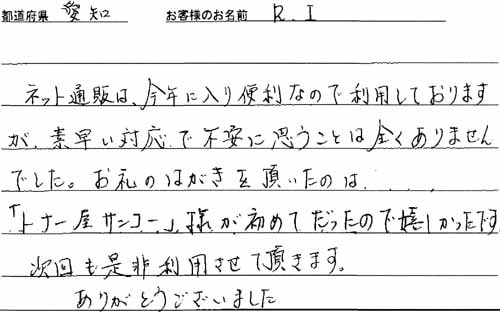 都道府県 愛知 お客様のお名前 R.I
ネット通販は、今年に入り便利なので利用しております
が、素早い対応で不安に思うことは全くありません
でした。お礼のはがきを頂いたのは....
「トナー屋サンコー」様が初めてだったので嬉しかったです
次回も是非利用させて頂きます。
ありがとうございました